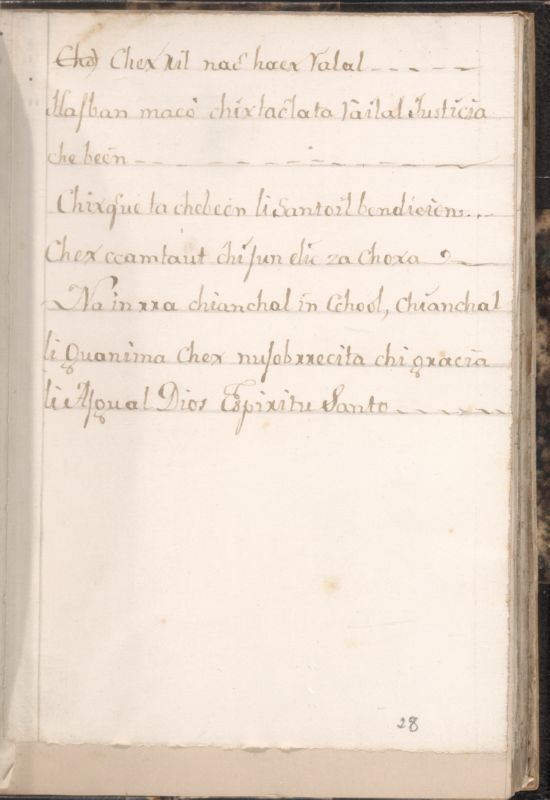 Chex xil nac hoex Valal
Hasban maco chixtaclata railal Justicia
che been
Chixq̃ue ta chebeen li Santoil bendicion
Chex ccamtaut chi jun elic za Choxa
Na in xxa chianchal in Cchool, Chianchal
li Quanima Chex nusobxxecita chi gxacia
li Asqual Dios Espixitu Santo
28